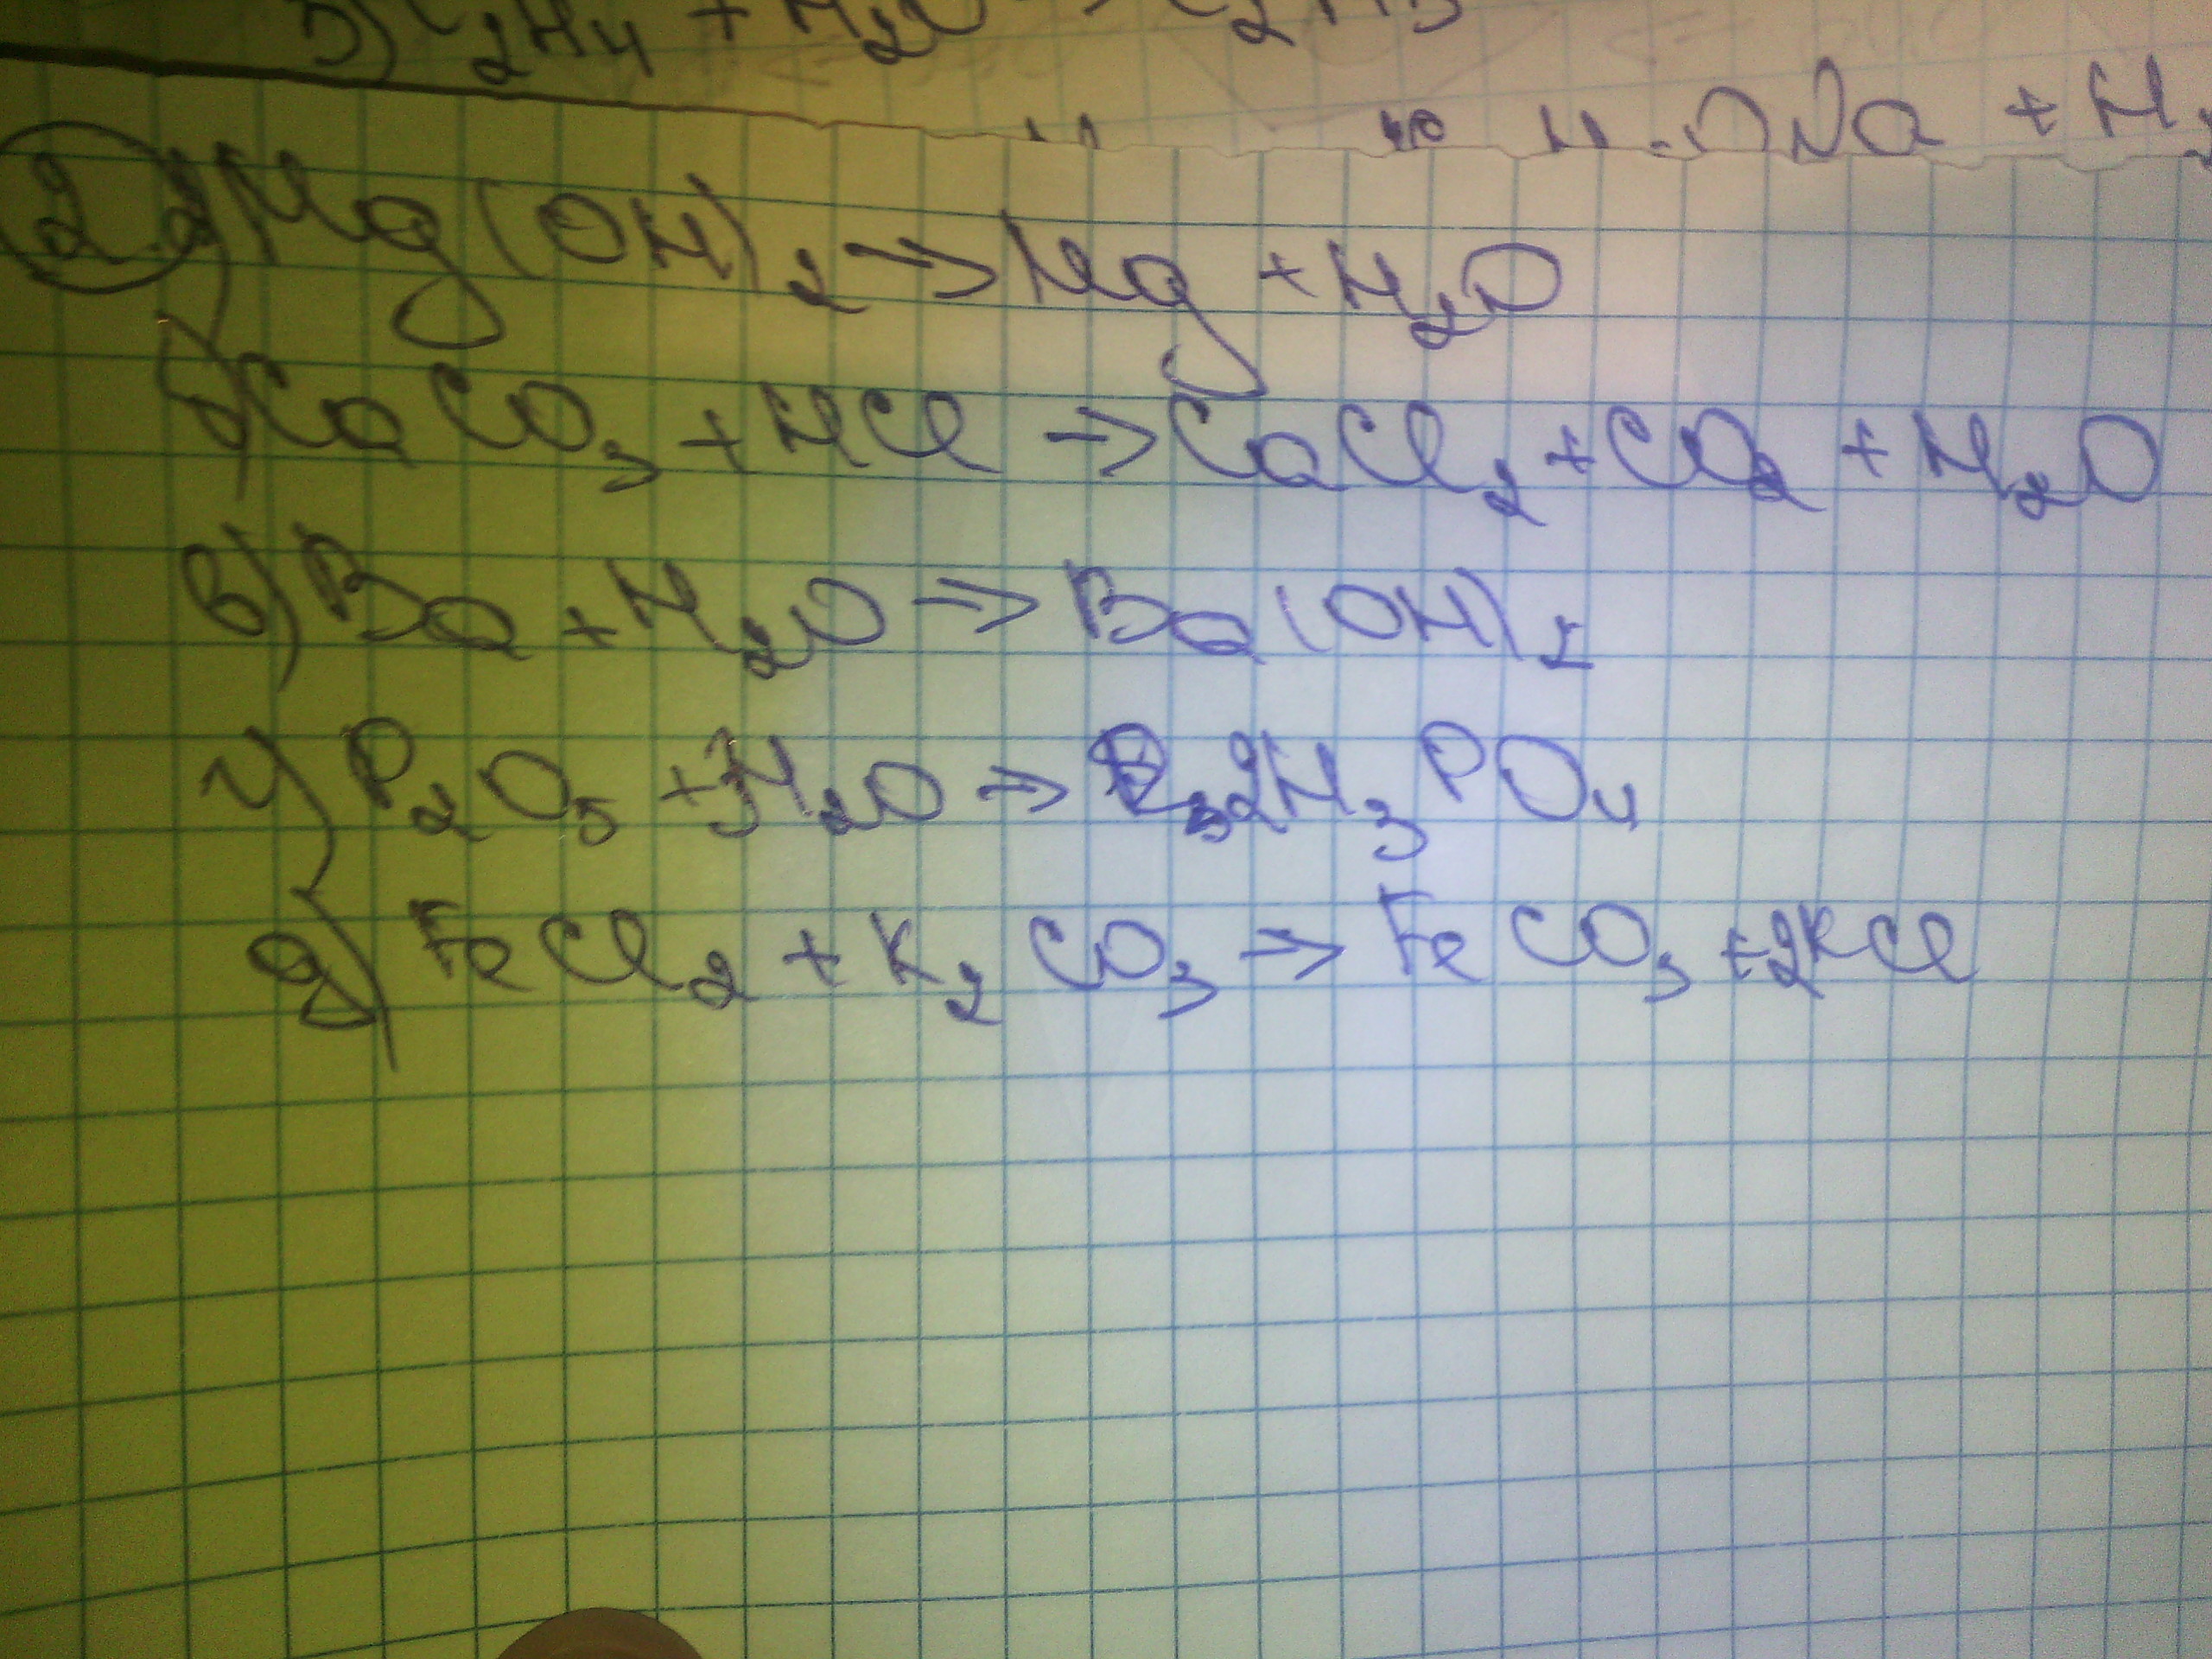 5) C₂H₄ + H₂O → C₂H₅
ONa + H₂
2. а) Mg(OH)₂ → Mg + H₂O
б) CaCO₃ + HCl → CaCl₂ + CO₂ + H₂O
в) Ba + H₂O → Ba(OH)₂
г) P₂O₅ + 3H₂O → 2H₃PO₄
д) FeCl₂ + K₂CO₃ → FeCO₃ + 2KCl